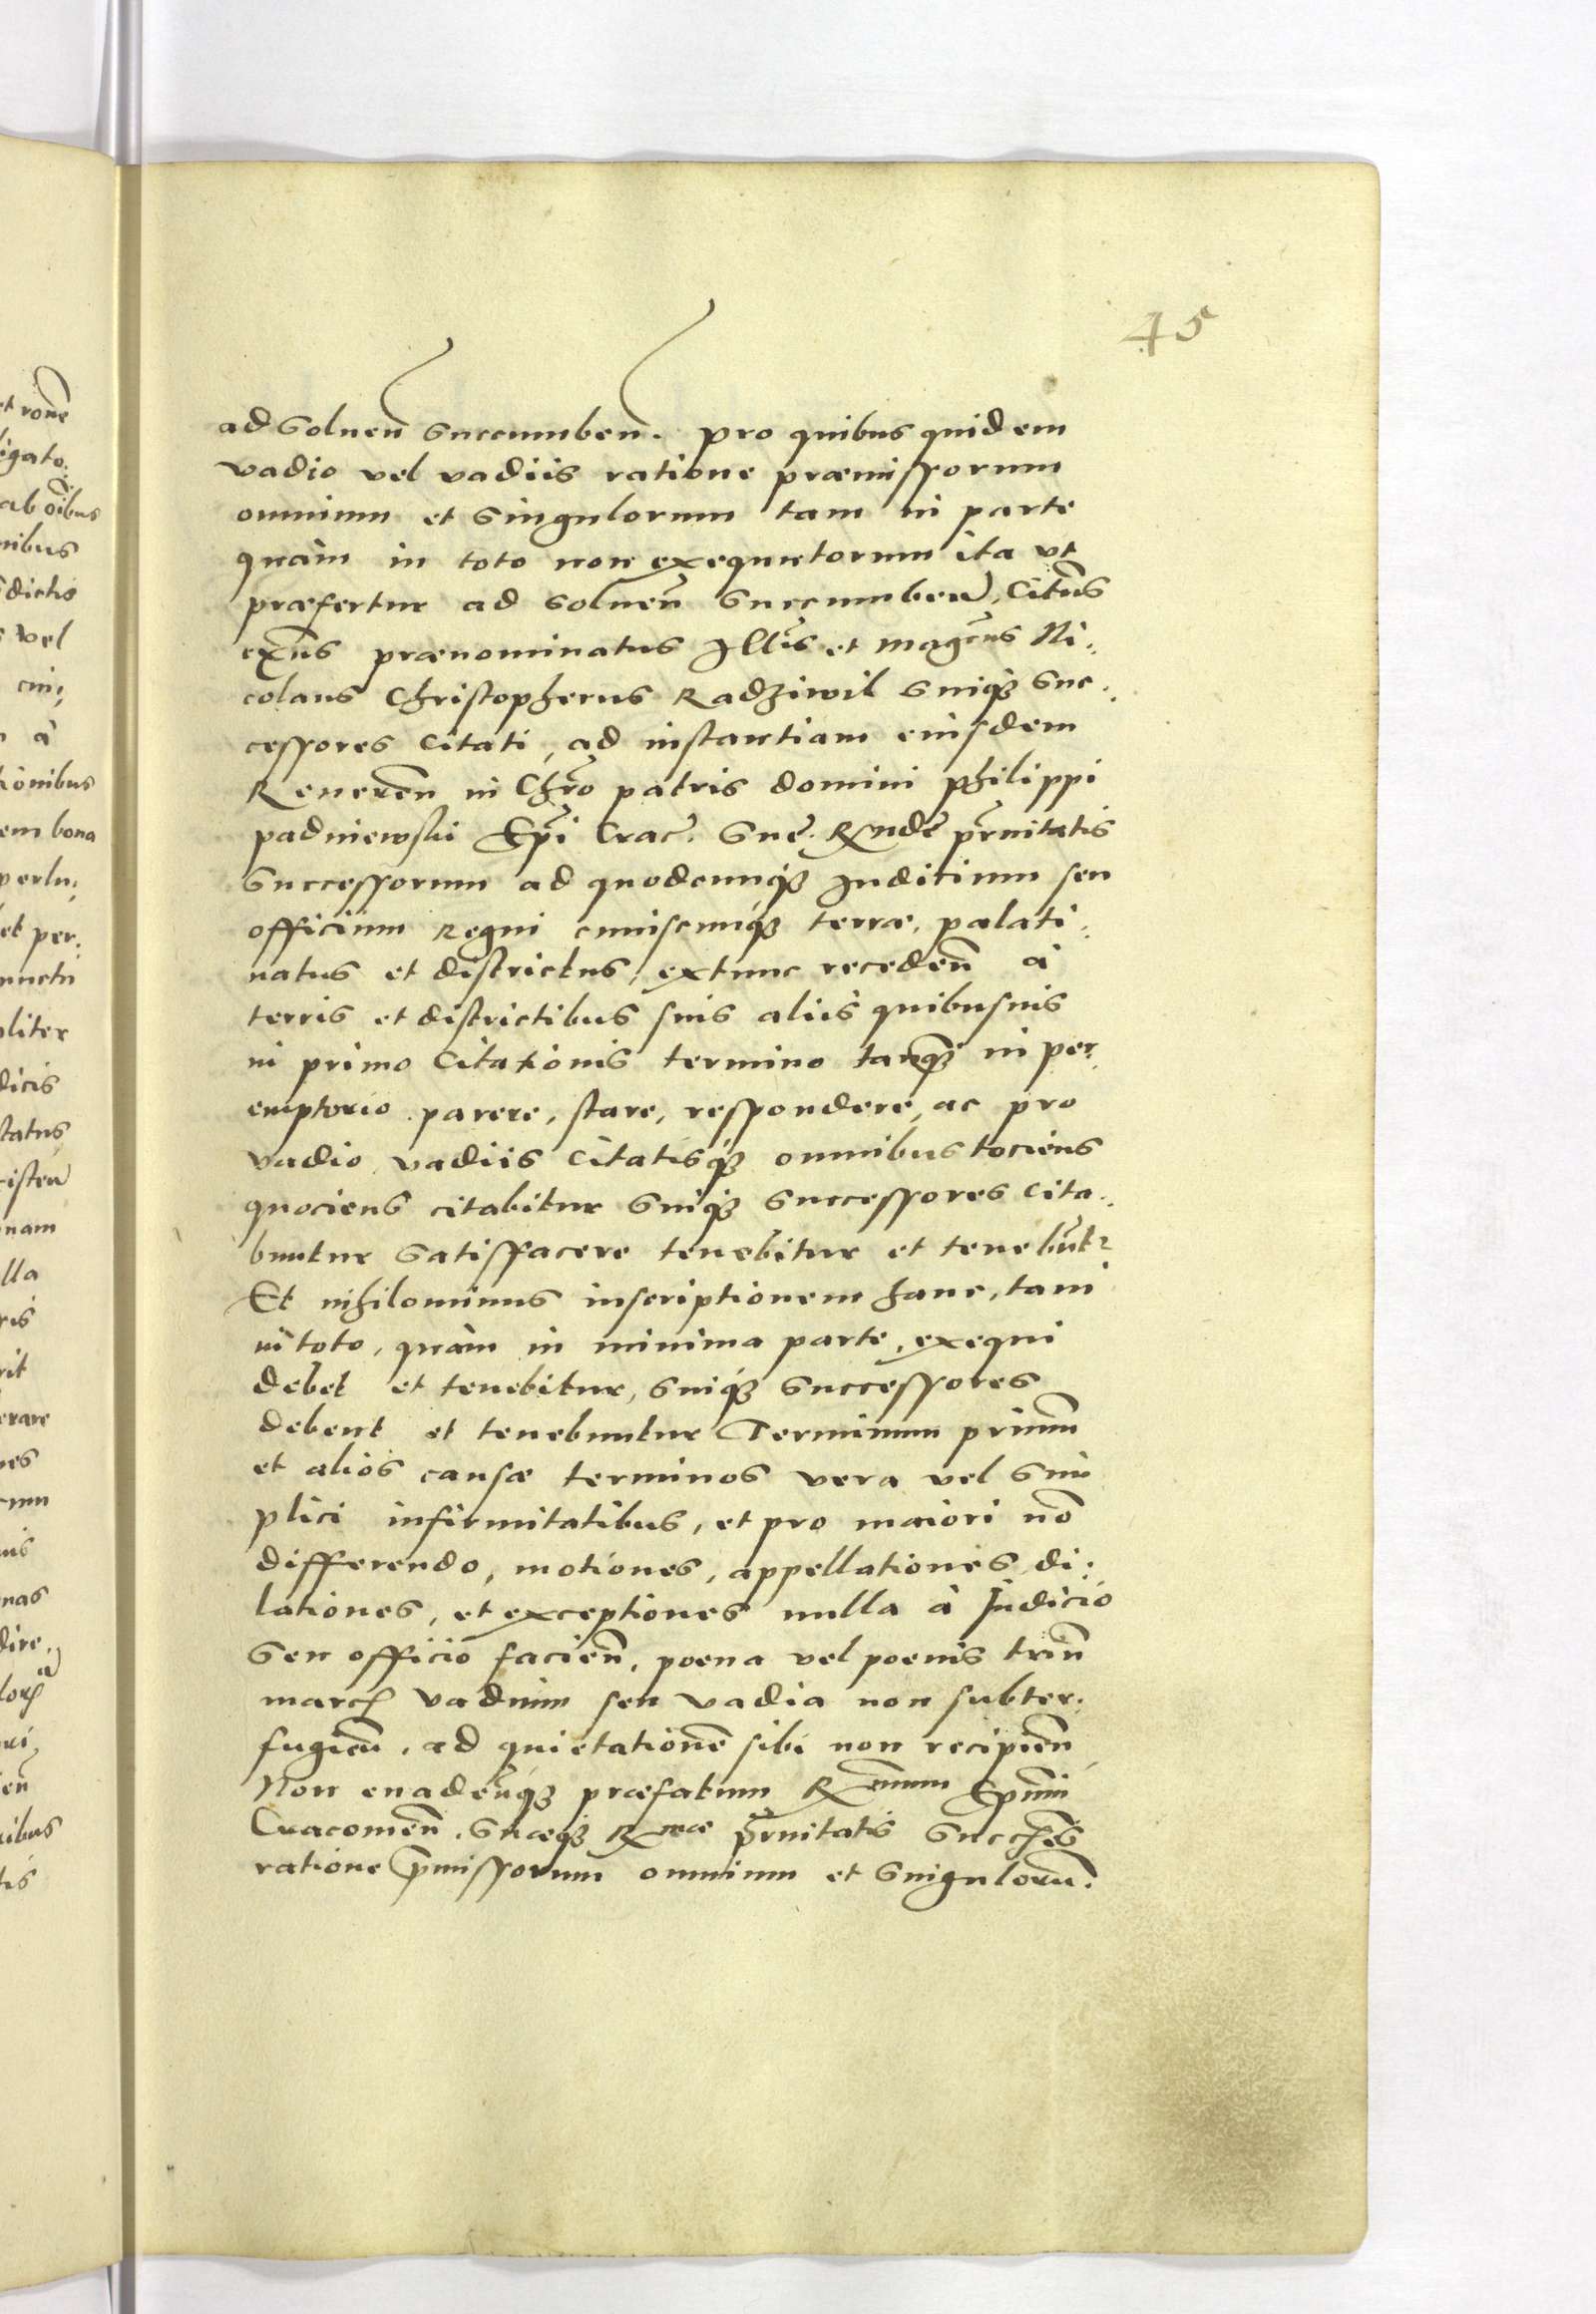 45
ad Soluen̄ Succumben̄. pro quibus quidem
vadio vel vadiis ratione præmissorum
omnium et Singulorum tam in parte
quàm in toto non exequutorum ita vt
præfertur ad Soluen̄ Succumben̄, Citūs
exn̄s prænominatus Illr̄is et magcūs Ni:
colaus Christopherus Radziwil Suiq; Suc:
cessores Citati, ad instantiam eiusdem
Reueren̄ in Chr̄o patris domini Philippi
padniewski Ep̄i Crac̄. Suē. Rndē pr̄nitatis
Successorum ad quodcunq; Iuditium seu
officium Regni cuiuscunq; terræ, palati:
natus et districtus, extunc receden̄ à
terris et districtibus suis aliis quibusuis
in primo Citationis termino tanq̄; in per:
emptorio parere, stare, respondere, ac pro
vadio vadiis Citatisq; omnibus tociens
quociens citabitur Suiq; Successores Cita:
buntur Satisfacere tenebitur et tenebūt2
Et nihilominus inscriptionem hanc, tam
in toto, quàm in minima parte, exequi
debet et tenebitur, Suiq; Successores
debent et tenebuntur Terminum primū
et alios causæ terminos vera vel Sim
plici infirmitatibus, et pro maiori nō
differendo, motiones, appellationes, di:
lationes, et exceptiones nulla à Iudicio
Seu officio facien̄, poena vel poenis trin̄
marcꝭ vadium seu vadia non subter:
fugien̄, ad quietationē sibi non recipien̄
Non euaden̄q; præfatum Rmum Ep̄um
Cracouien̄. Suæq; Rmæ pr̄nitatis Succēs̄
ratione p̄missorum omnium et Singulorū.
et ronē
ligato:
ab oībus
nibus
dictis
vel
cui;
à
tionibus
em bona
perlu;
et per:
liter
dicis
status
nam
lla
ris
rit
erare
nes
nas
dire.
ri,
en̄
ibus
tis